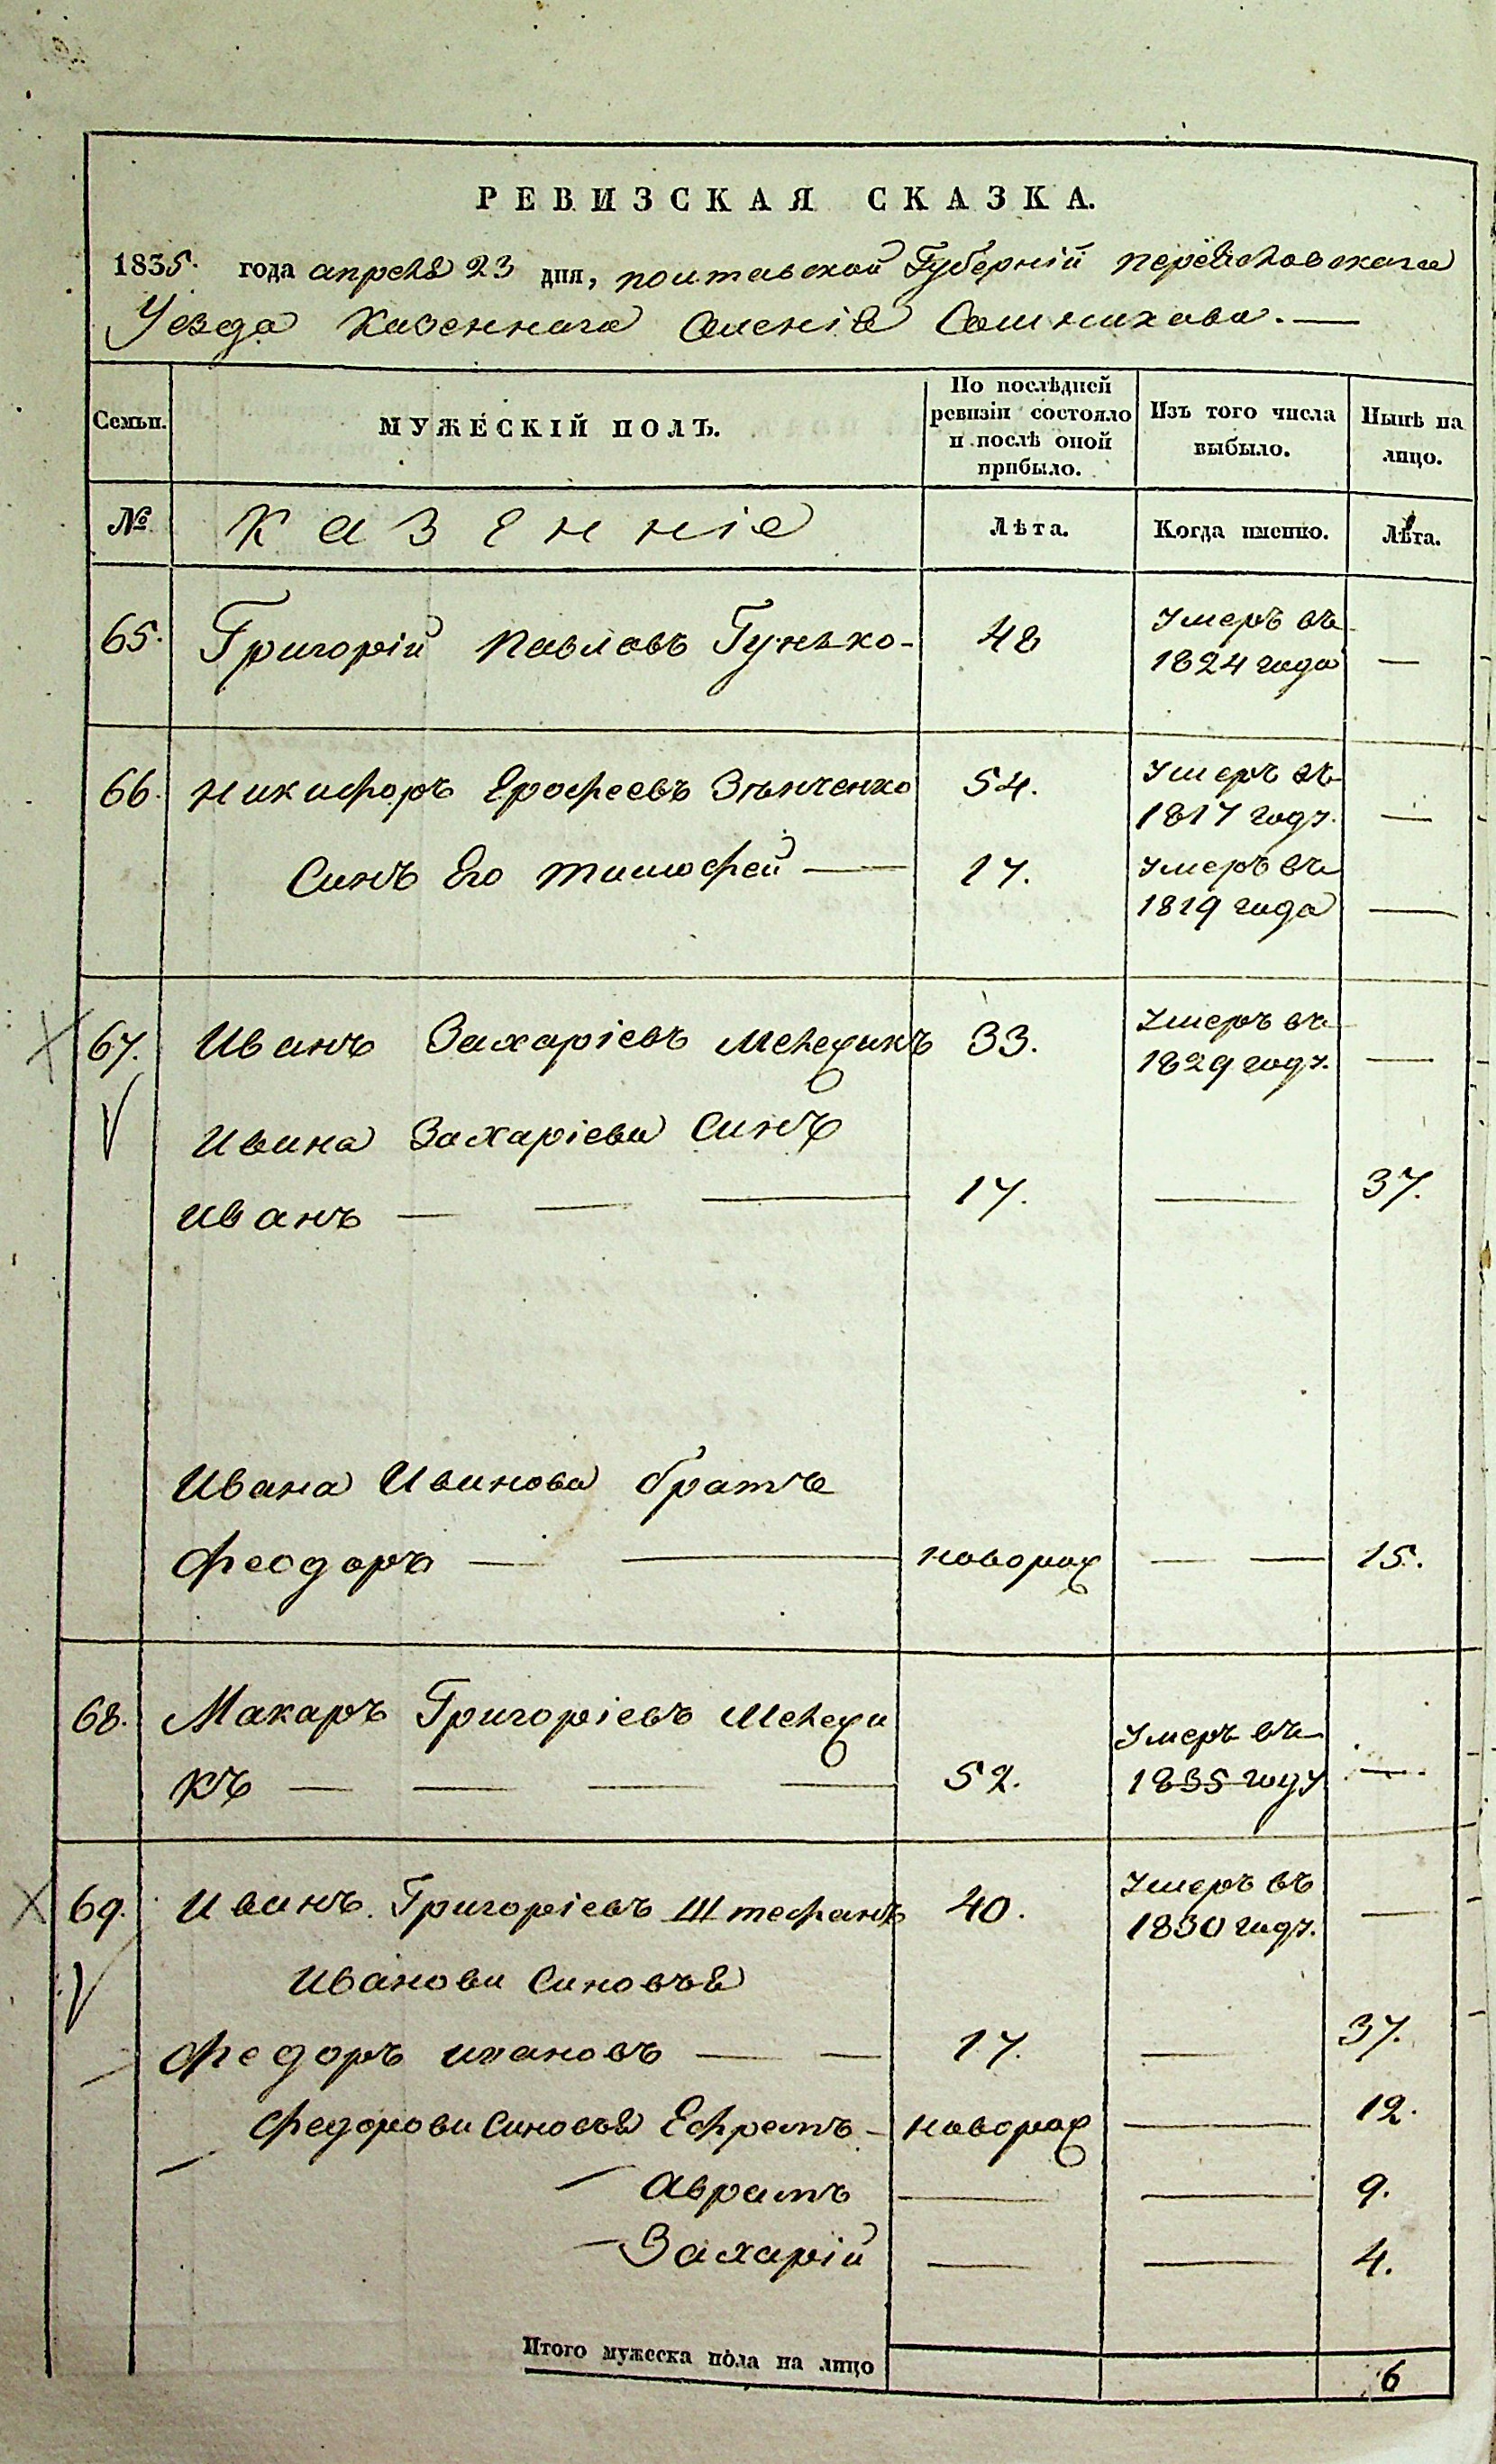 РЕВИЗСКАЯ СКАЗКА.
1835. года апреля 23 дня, полтавской Губерніи
Уезда Казеннаго Селенія Сошникова. —
Семьи.
МУЖЕСКІЙ ПОЛЪ.
По послѣдней ревизіи состояло и послѣ оной прибыло.
Изъ того числа выбыло.
Нынѣ на лицо.
№ Казенніе Лѣта. Когда именно. Лѣта.
65. Григорій Павловъ Гунько - 48 Умеръ въ
1824 года —
66. Никифоръ Ерофеевъ Зѣнченко 54. Умеръ въ
1817 году. —
Синъ Его тимофей — 17. Умеръ въ
1819 года —
67. Иванъ Захаріевъ Мележикъ 33. Умеръ въ
1829 году. —
Ивана Захаріева Синъ
Иванъ — — — 17. — 37.
Ивана Иванова братъ
Феодоръ — — новорож — — 15.
68. Макаръ Григоріевъ Мележи
къ — — — — 52. Умеръ въ
1835 году —
69. Иванъ Григоріевъ Штефанъ 40. Умеръ въ
1830 году. —
Иванови Синовья
Федоръ ивановъ — — 17. — 37.
Федорови Синовья Ефремъ - новорож — 12.
Аврамъ — — 9.
Захарій — — 4.
Итого мужеска пола на лицо 6